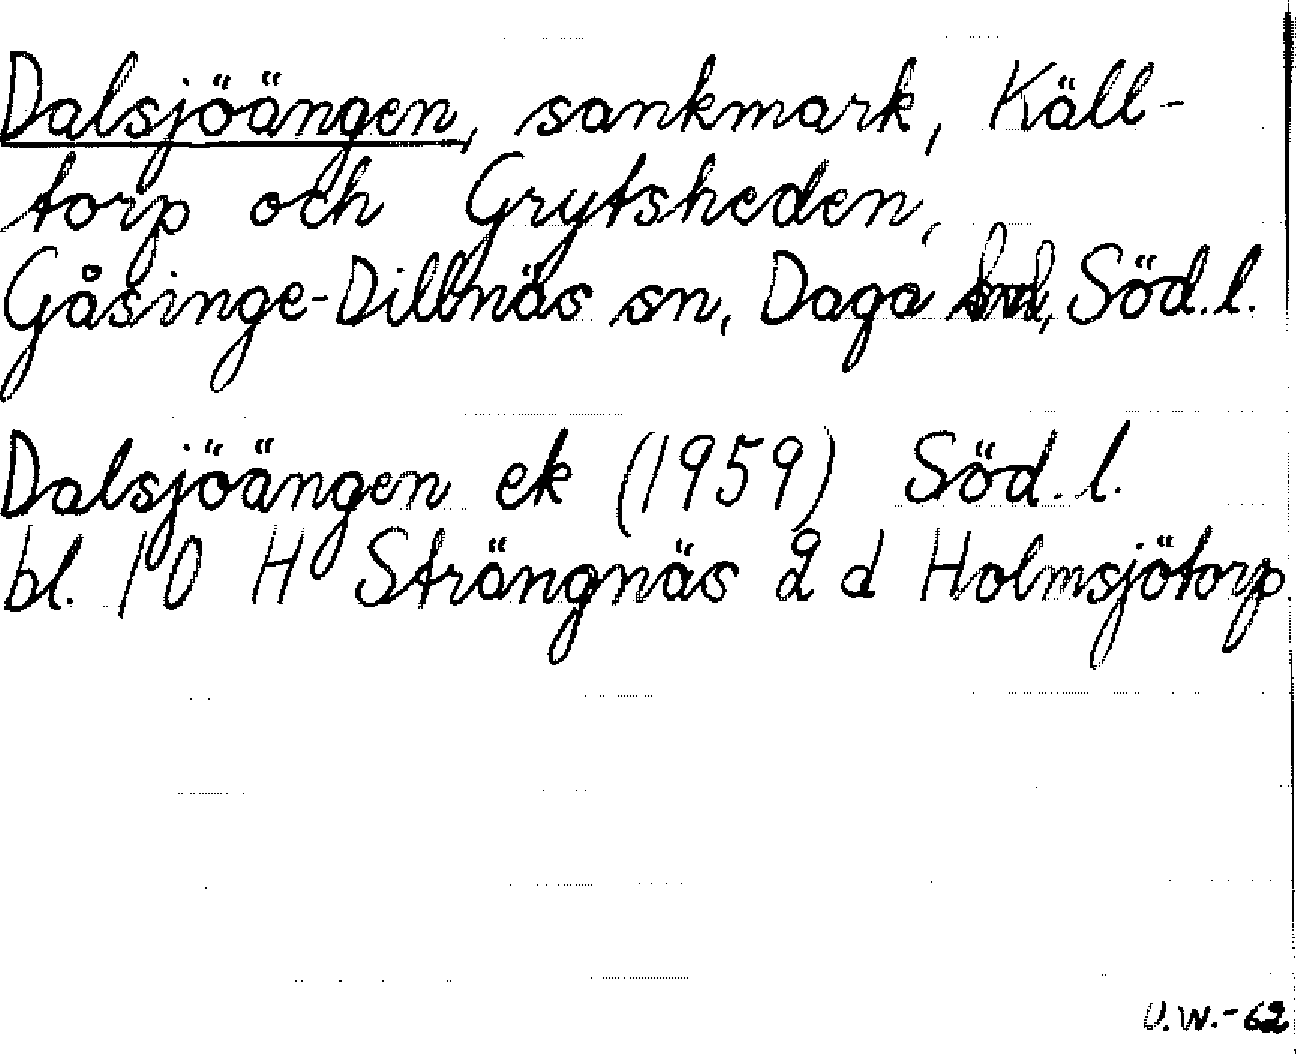 Dalsjöängen, sankmark, Käll-
torp och Grytsheden,
Gåsinge-Dillnäs sn, Daga hd, Söd.l.
Dalsjöängen ek (1959) Söd.l.
bl. 10 H Strängnäs 2 d Holmsjötorp.
U.W.-62